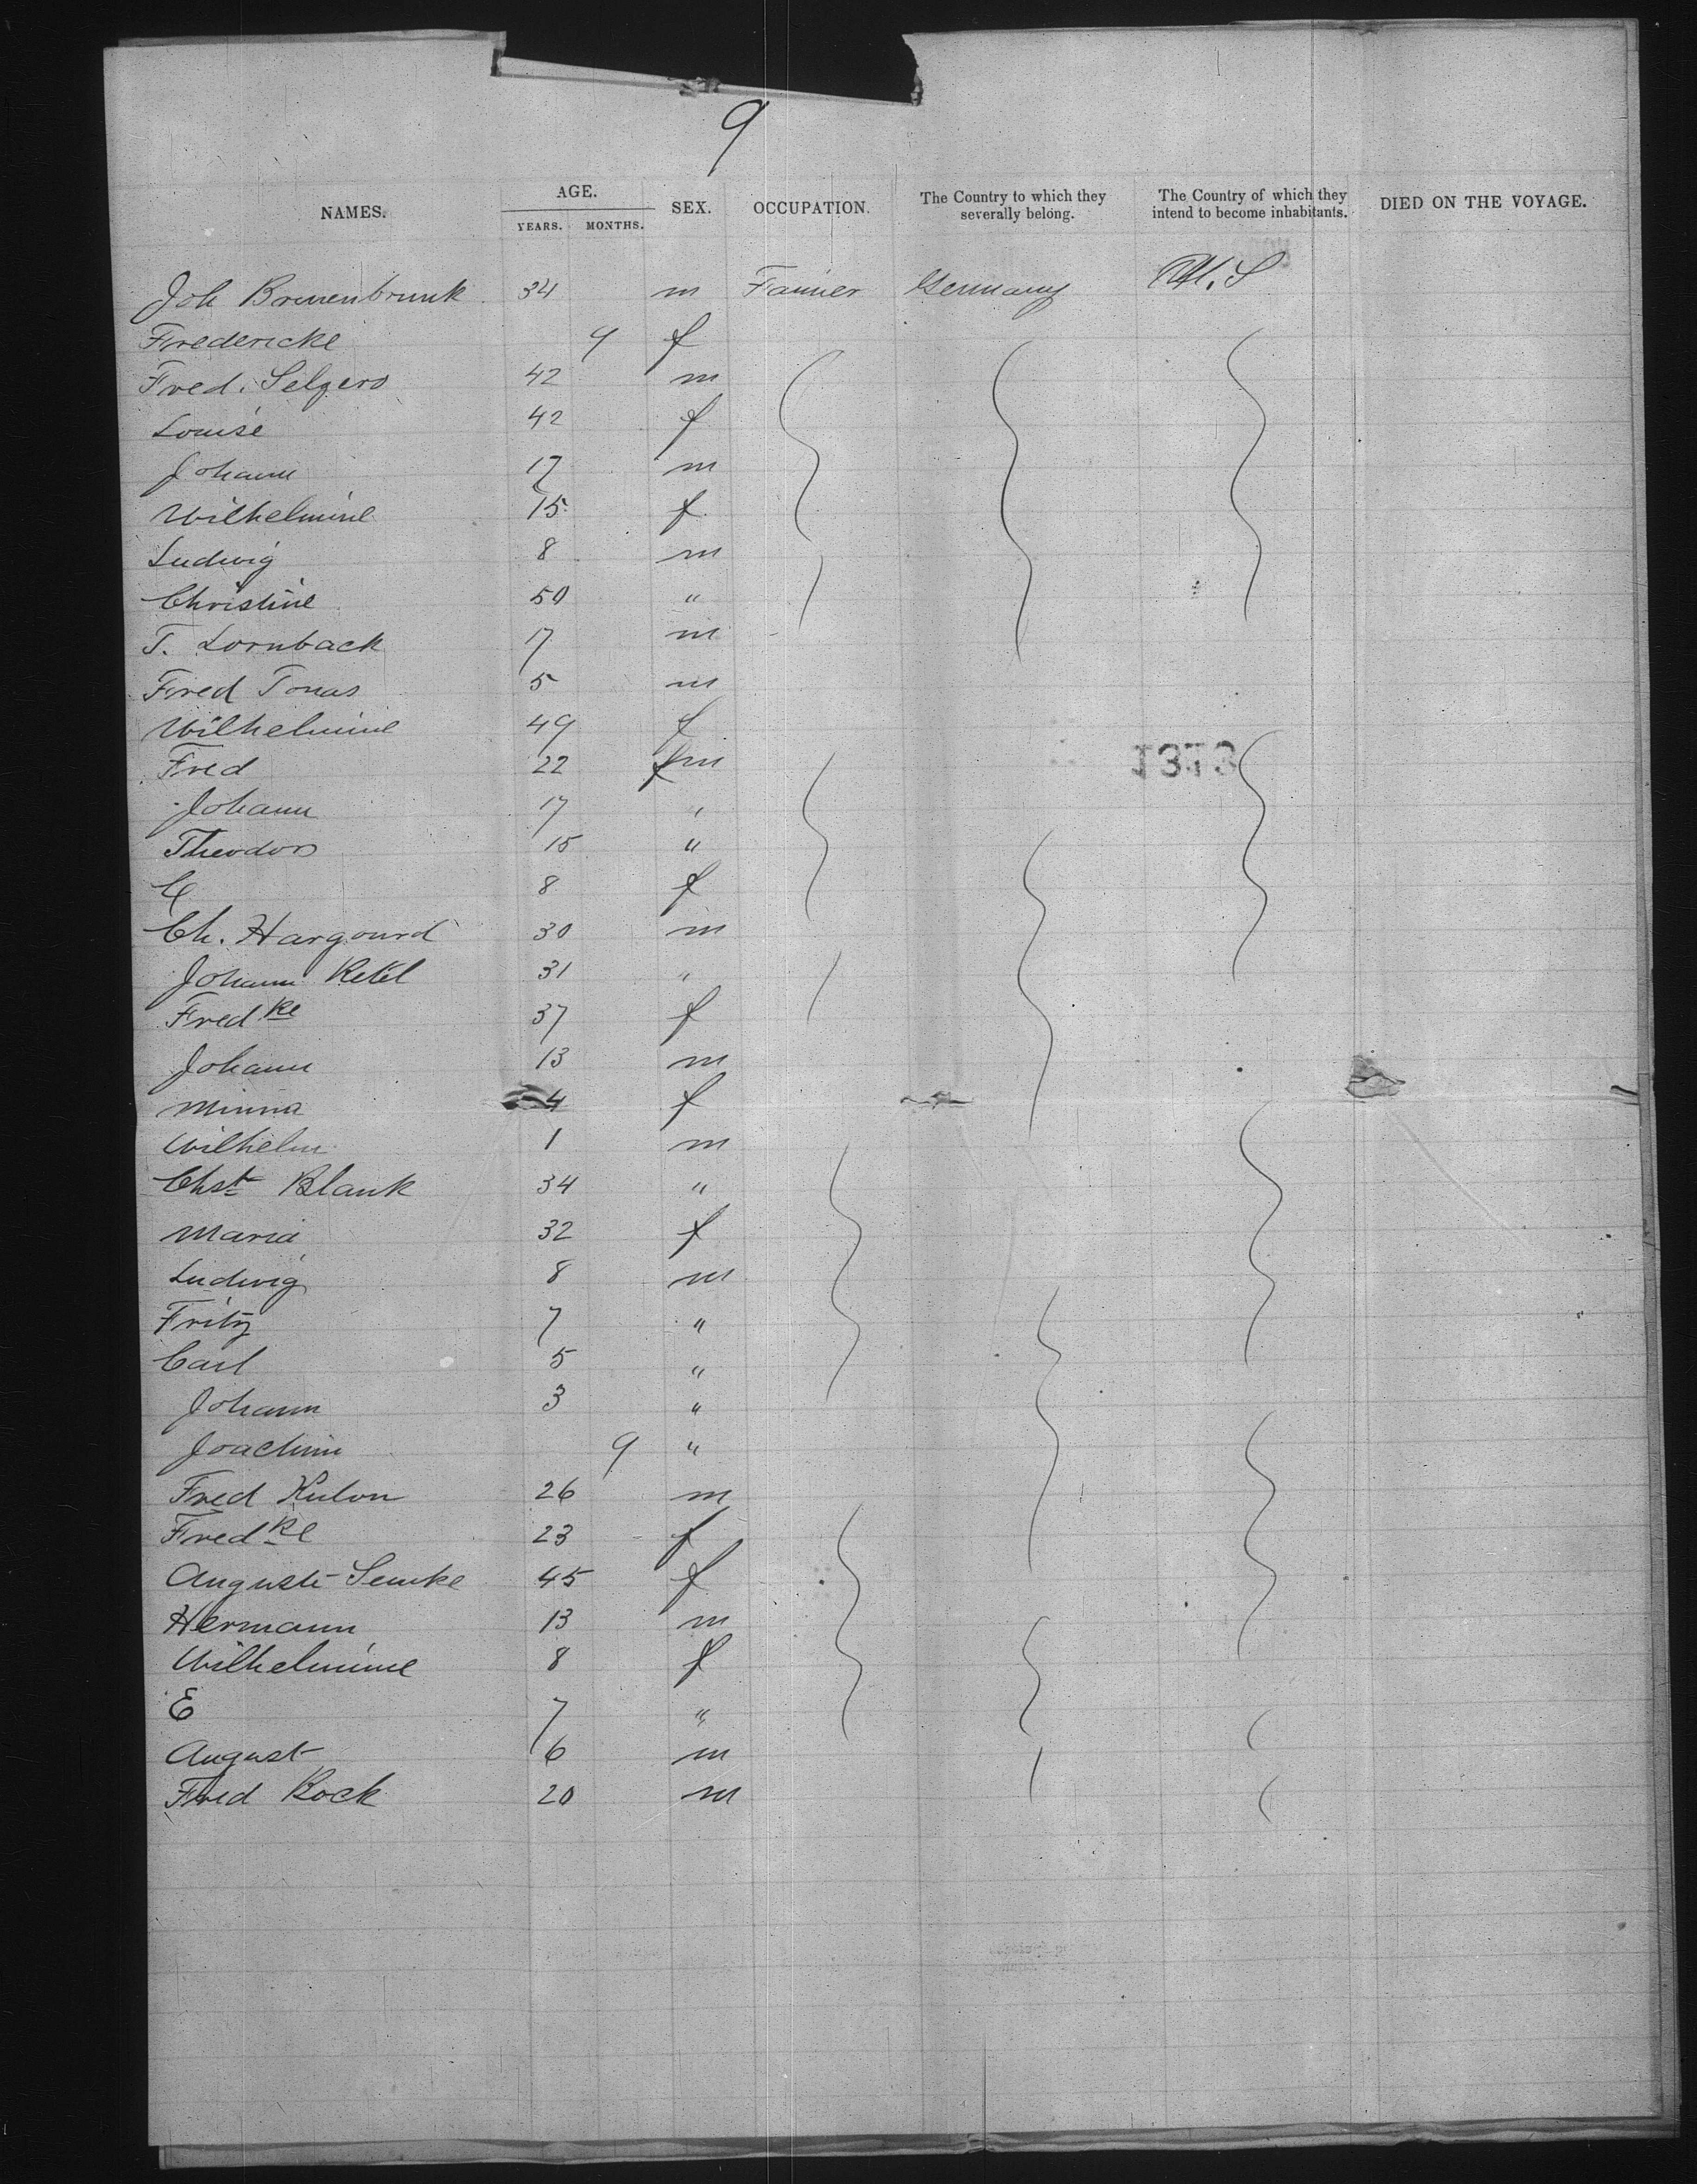 9
NAMES. AGE. YEARS. MONTHS. SEX. OCCUPATION. The Country to which they severally belong. The Country of which they intend to become inhabitants. DIED ON THE VOYAGE.
Joh Brunenbrunk 34 m Farmer Germany U.S
Fredericke 9 f
Fred. Selgers 42 m
Louise 42 f
Johann 17 m
Wilhelmine 15 f
Ludwig 8 m
Christine 50 "
T. Lornback 17 m
Fred Tonas 5 m
Wilhelmine 49 f
Fred 22 m
Johann 17 "
Theodor 15 "
C 8 f
Ch. Hargourd 30 m
Johann Retel 31 "
Fred ke 37 f
Johann 13 m
Minna 4 f
Wilhelm 1 m
Chst Blank 34 "
Maria 32 f
Ludwig 8 m
Fritz 7 "
Carl 5 "
Johann 3 "
Joachim 9 "
Fred Kulow 26 m
Fred ke 23 f
Auguste Semke 45 f
Hermann 13 m
Wilhelmine 8 f
E 7 "
August 6 m
Fred Bock 20 m